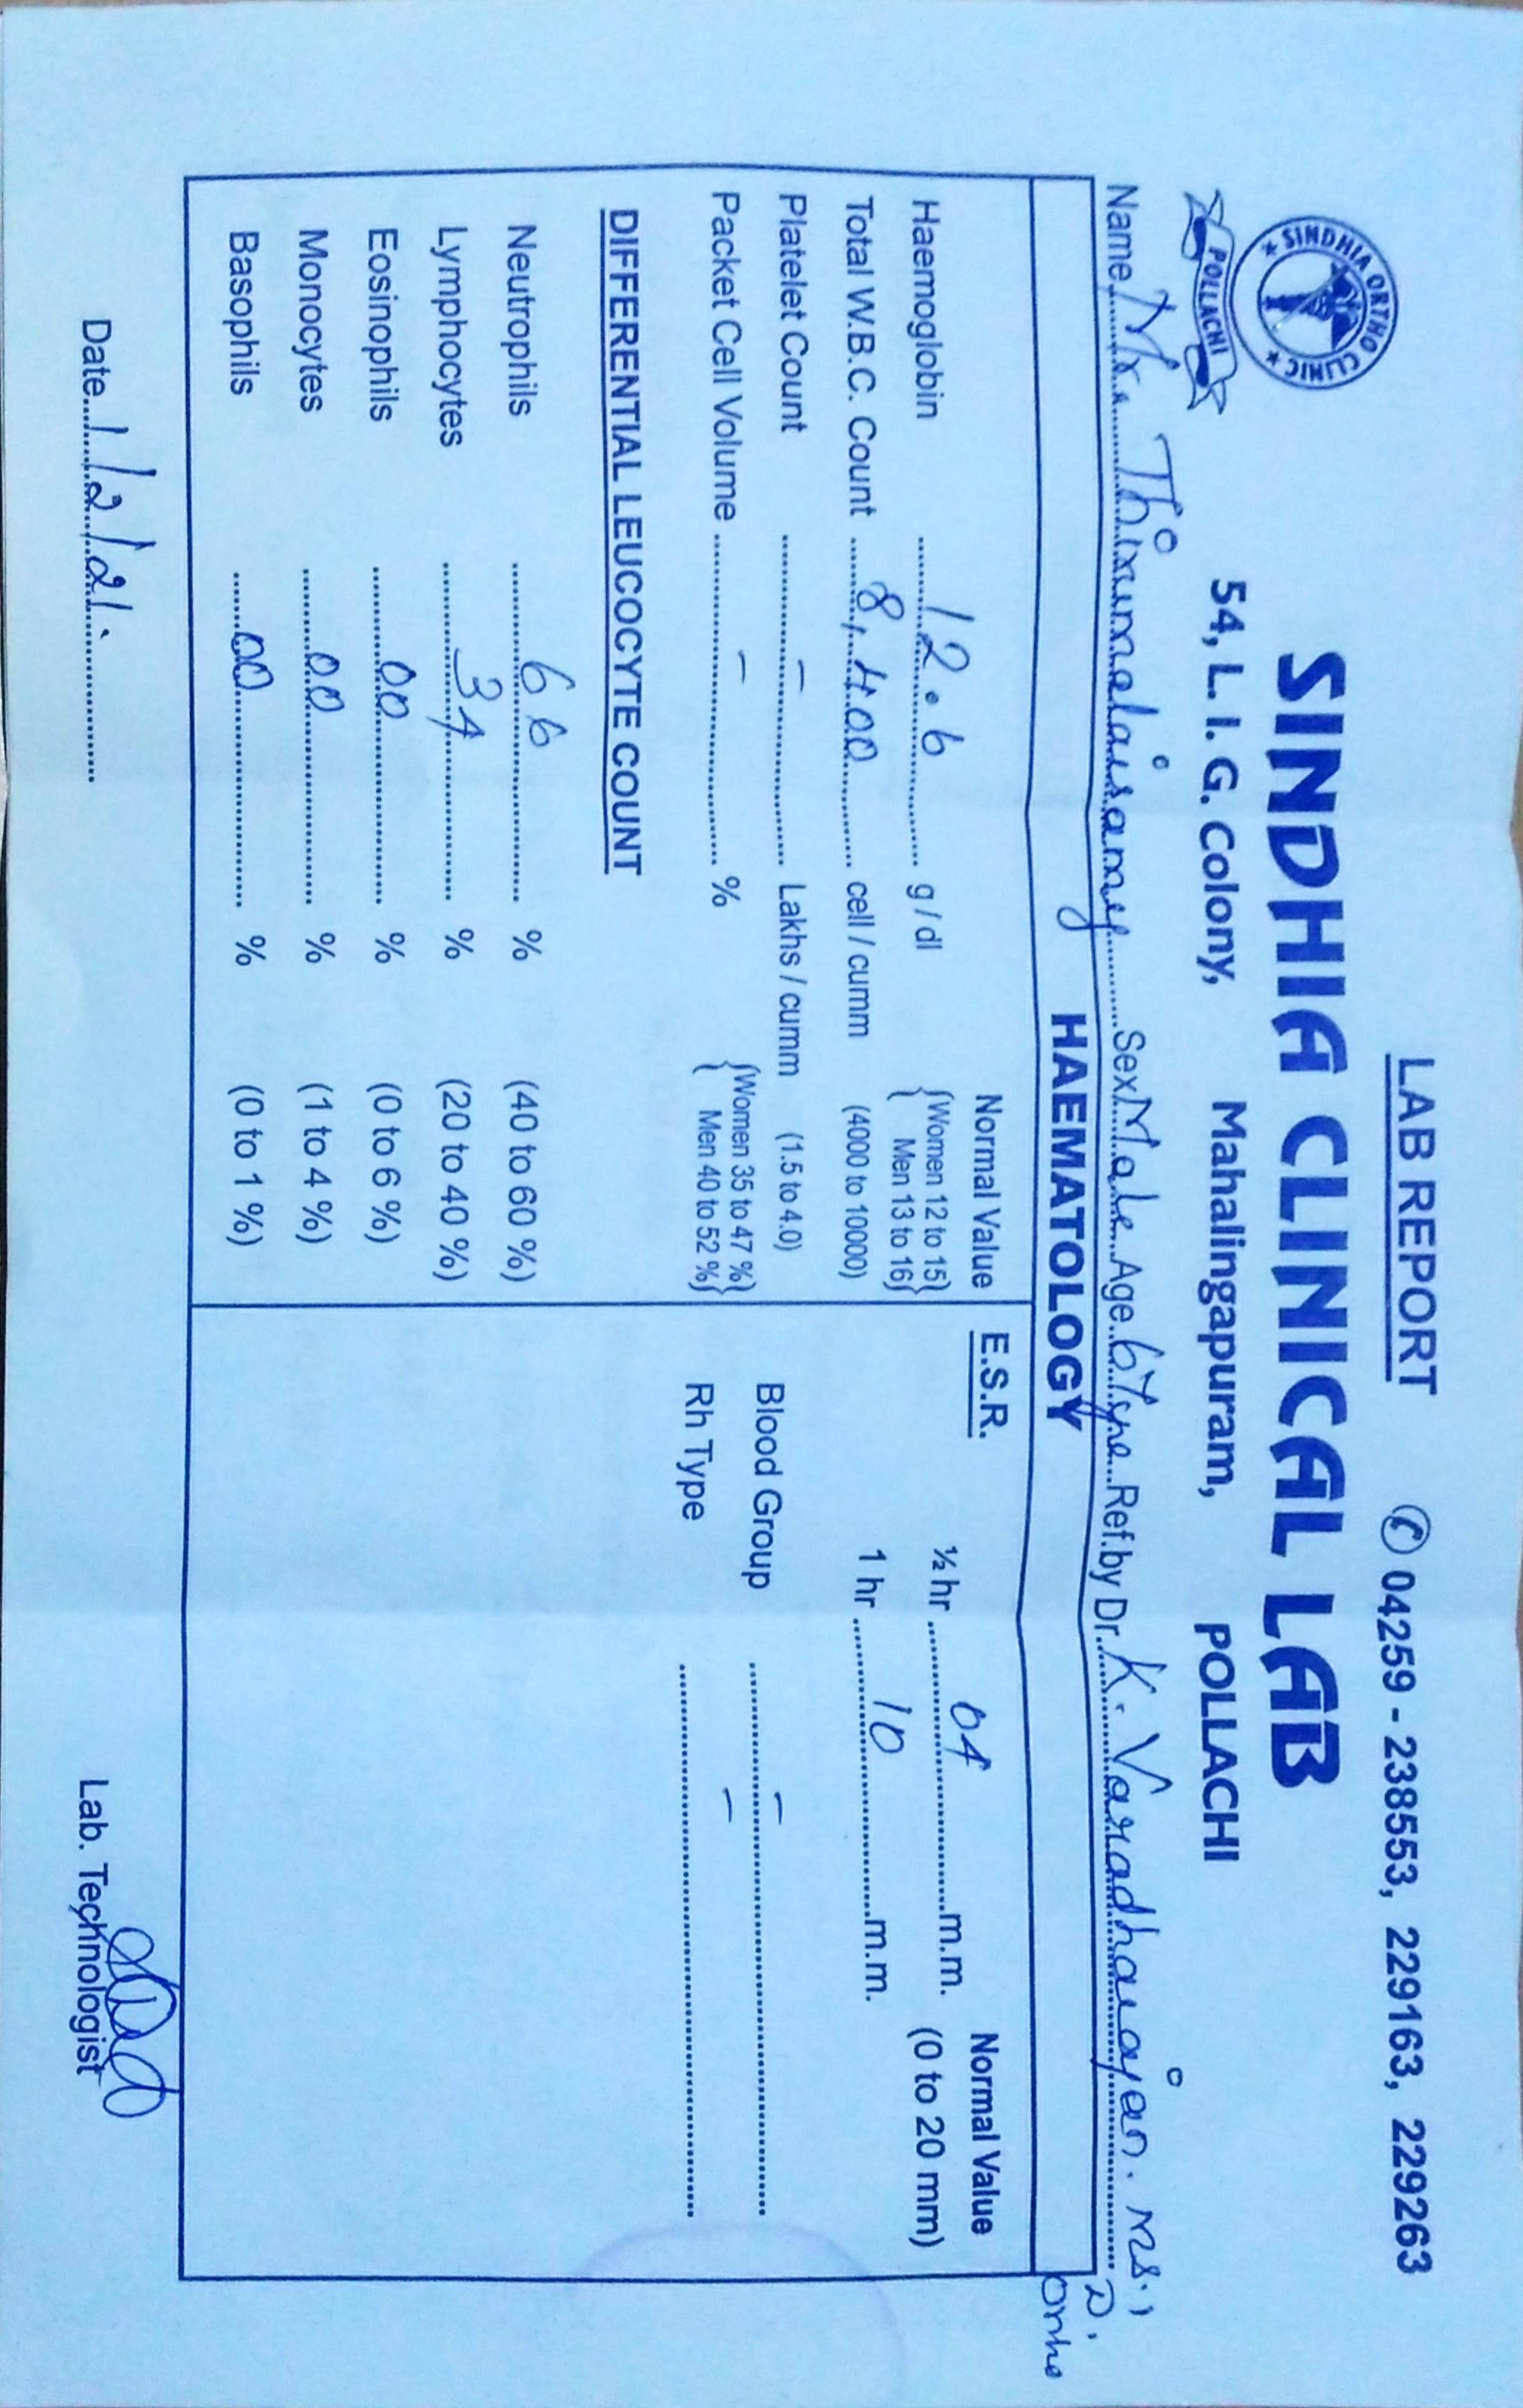 LAB REPORT ✆ 04259 - 238553, 229163, 229263
SINDHIA ORTHO CLINIC
POLLACHI
SINDHIA CLINICAL LAB
54, L. I. G. Colony, Mahalingapuram, POLLACHI
Name Mr. Thirumalaisamy Sex Male Age 67yrs Ref.by Dr. K. Varadharajan. MS.,
D. Ortho
HAEMATOLOGY
Normal Value
Haemoglobin 12.6 g / dl {Women 12 to 15}
{ Men 13 to 16}
Total W.B.C. Count 8,400 cell / cumm (4000 to 10000)
Platelet Count – Lakhs / cumm (1.5 to 4.0)
Packet Cell Volume – % {Women 35 to 47 %}
{ Men 40 to 52 %}
DIFFERENTIAL LEUCOCYTE COUNT
Neutrophils 66 % (40 to 60 %)
Lymphocytes 34 % (20 to 40 %)
Eosinophils 00 % (0 to 6 %)
Monocytes 00 % (1 to 4 %)
Basophils 00 % (0 to 1 %)
E.S.R. Normal Value
½ hr 04 m.m. (0 to 20 mm)
1 hr 10 m.m.
Blood Group –
Rh Type –
Date 1/2/21. Lab. Technologist